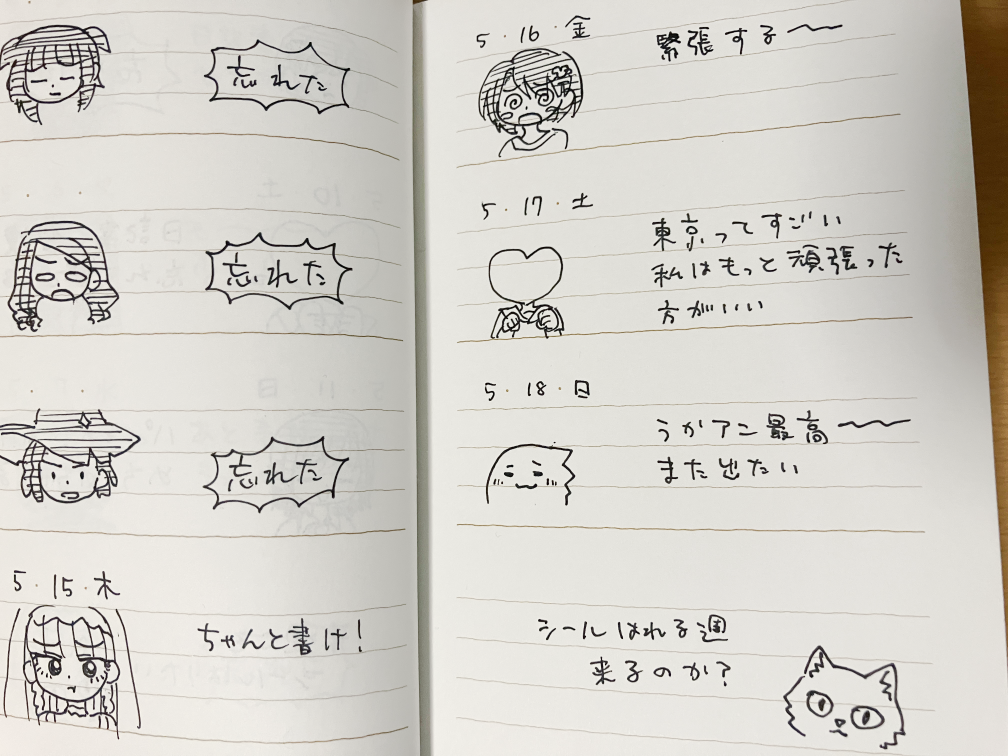 忘れた
忘れた
忘れた
5・15・木
ちゃんと書け!
5・16・金
緊張する〜
5・17・土
東京ってすごい
私はもっと頑張った
方がいい
5・18・日
うかアニ最高〜
また出たい
シールはれる週
来るのか?